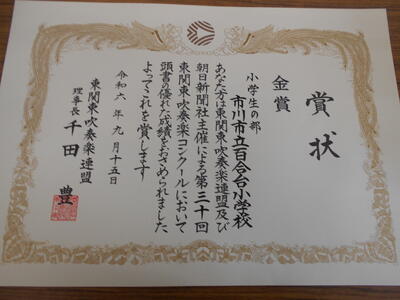 賞状
金賞
小学生の部
市川市立百合台小学校
あなた方は東関東吹奏楽連盟及び
朝日新聞社主催による第三十回
東関東吹奏楽コンクールにおいて
頭書の優れた成績をおさめられました
よってこれを賞します
令和六年九月十五日
東関東吹奏楽連盟
理事長 千田 豊